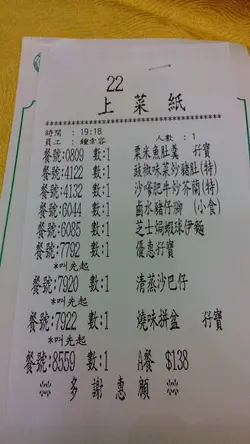 22
上菜紙
********************************
時間 : 19:18 人數 : 1
員工 : 鍾李容
餐號:0809 數:1 粟米魚肚羹 行寶
餐號:4122 數:1 豉椒味菜炒豬肚(特)
餐號:4132 數:1 沙嗲肥牛炒芥蘭(特)
餐號:6044 數:1 鹵水豬仔腳 (小食)
餐號:6085 數:1 芝士焗蝦球伊麵
餐號:7792 數:1 優惠行寶
*叫先起
餐號:7920 數:1 清蒸沙巴仔
*叫先起
餐號:7922 數:1 燒味拼盆 行寶
*叫先起
餐號:8559 數:1 A餐 $138
※ 多謝惠顧 ※